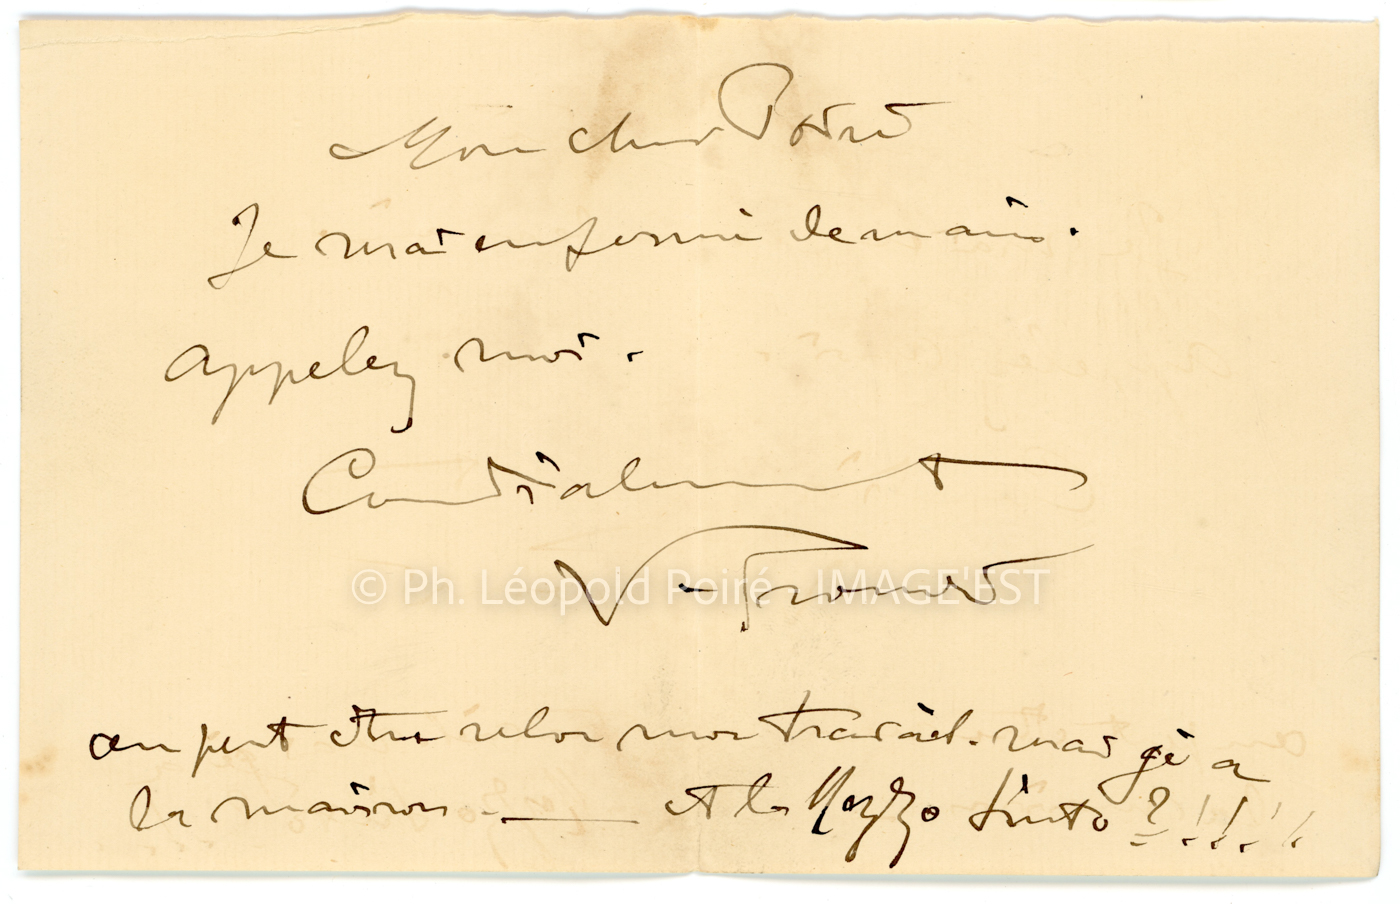 Mon cher Poiré
Je serai enfermé demain.
appelez moi.
Cordialement
V. Prouvé
© Ph. Léopold Poiré - IMAGE'EST
ou peut être selon mon travail. mais à
la maison. — et le Mezzo tinto ?!!!!!